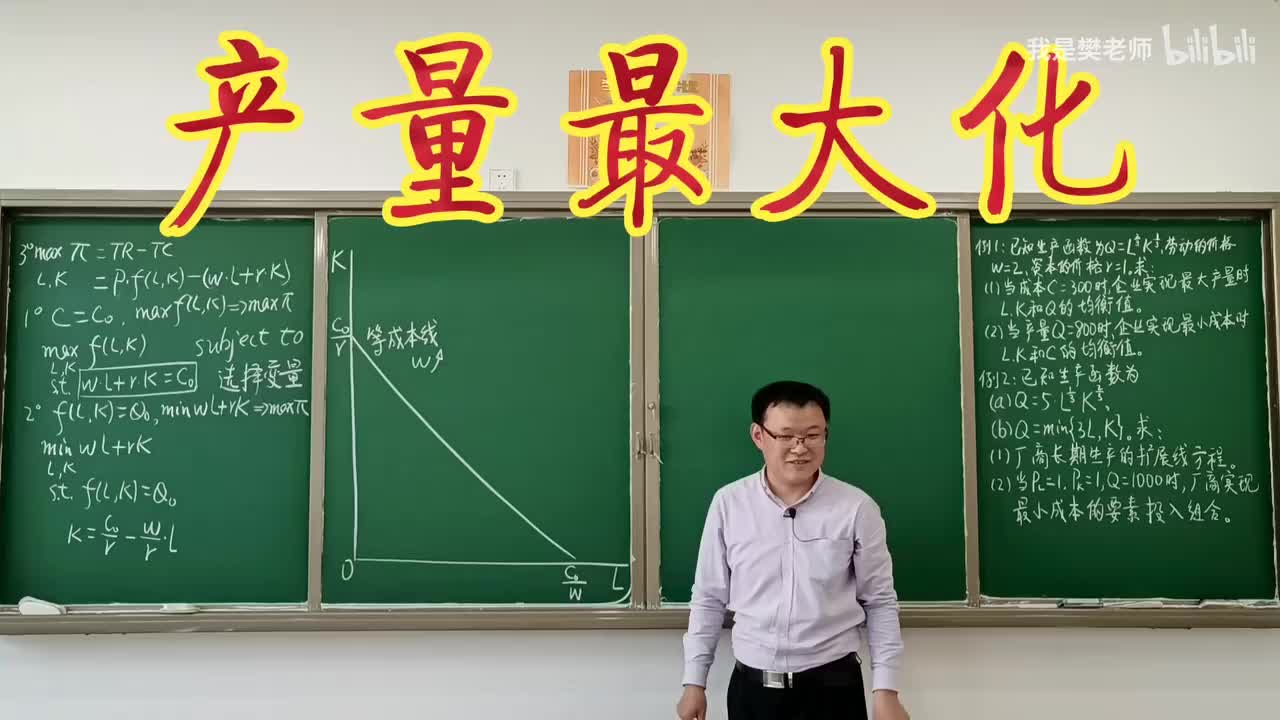 产量最大化
我是樊老师 bilibili
3° max π = TR - TC
L,K = P·f(L,K) - (w·L+r·K)
1° C = C₀, max f(L,K) => max π
max f(L,K) subject to
L,K
s.t. w·L+r·K = C₀ 选择变量
2° f(L,K) = Q₀, min wL+rK => max π
min wL+rK
L,K
s.t. f(L,K) = Q₀
K = C₀/r - w/r·L
K
C₀/r
等成本线
w↗
0
C₀/w
L
例1:已知生产函数为Q=L^⅔K^⅓,劳动的价格
w=2,资本的价格r=1。求:
(1)当成本C=300时,企业实现最大产量时
L,K和Q的均衡值。
(2)当产量Q=800时,企业实现最小成本时
L,K和C的均衡值。
例2:已知生产函数为
(a)Q=5·L^⅓K^⅔,
(b)Q=min{3L,K}。求:
(1)厂商长期生产的扩展线方程。
(2)当P_L=1,P_K=1,Q=1000时,厂商实现
最小成本的要素投入组合。